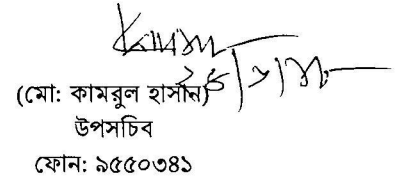 (মো: কামরুল হাসান)
উপসচিব
ফোন: ৯৫৫০৩৪১